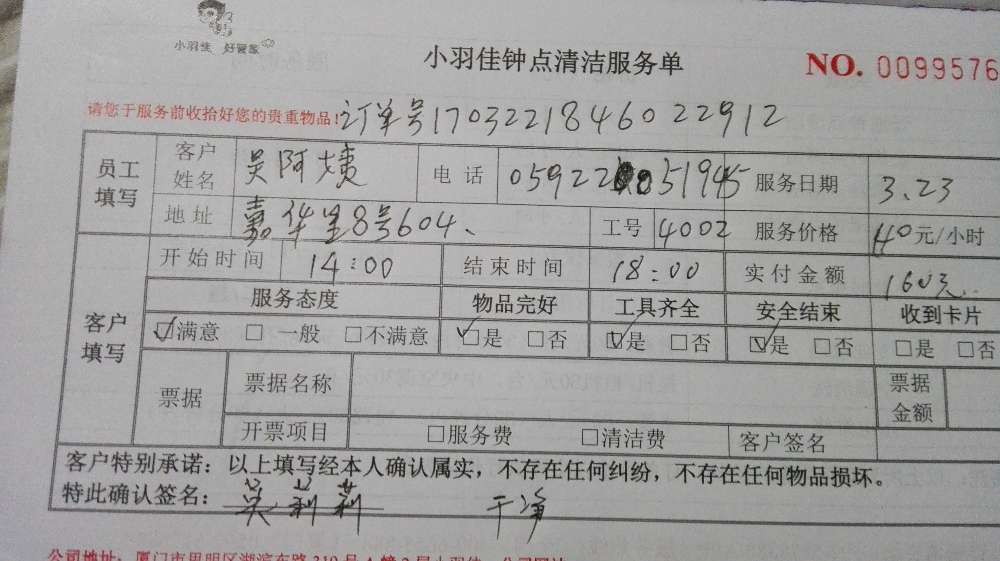 小羽佳 好管家
小羽佳钟点清洁服务单
NO. 0099576
请您于服务前收拾好您的贵重物品!
订单号170322184602 2912
员工填写 客户姓名 吴阿姨 电话 服务日期 3.23
地址 嘉华里8号604、 工号 4002 服务价格 40元/小时
客户填写 开始时间 14:00 结束时间 18:00 实付金额 160元
服务态度 物品完好 工具齐全 安全结束 收到卡片
☑满意 □一般 □不满意 ☑是 □否 ☑是 □否 ☑是 □否 □是 □否
票据 票据名称 票据金额
开票项目 □服务费 □清洁费 客户签名
客户特别承诺:以上填写经本人确认属实,不存在任何纠纷,不存在任何物品损坏。
特此确认签名:吴莉莉 干净